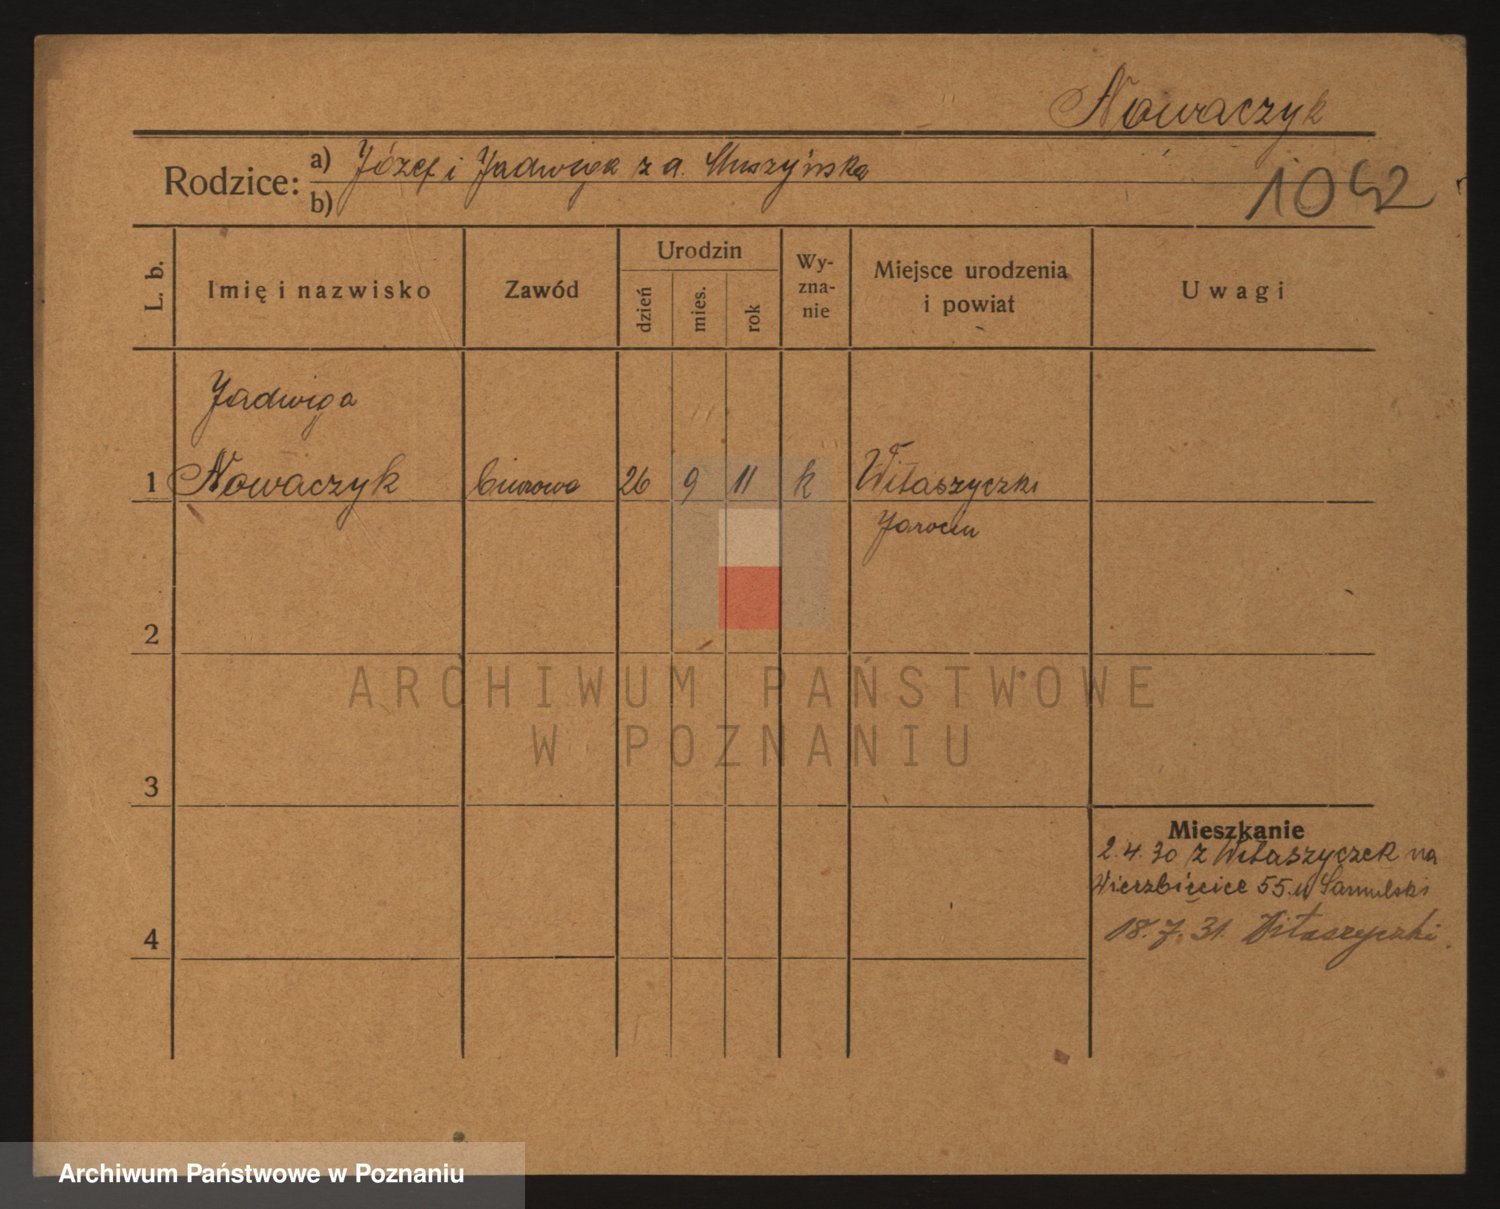 Nowaczyk
Rodzice: a) Józef i Jadwiga z d. Muszyńska
b)
1042
L. b.
Imię i nazwisko
Zawód
Urodzin
dzień
mies.
rok
Wy-
zna-
nie
Miejsce urodzenia
i powiat
Uwagi
Jadwiga
1 Nowaczyk biurowa 26 9 11 k Witaszyczki
Jarocin
2
ARCHIWUM PAŃSTWOWE
W POZNANIU
3
Mieszkanie
2.4.30 z Witaszyczek na
Wierzbięcice 55 u Samulski
18.7.31. Witaszyczki
4
Archiwum Państwowe w Poznaniu